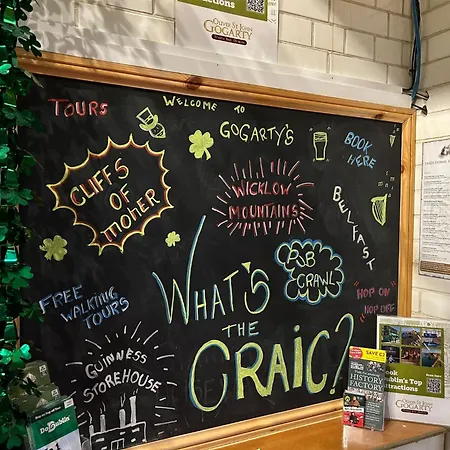 OLIVER ST JOHN
GOGARTY
TOURS
WELCOME TO
GOGARTY'S
BOOK
HERE
CLIFFS
OF
MOHER
WICKLOW
MOUNTAINS
BELFAST
PUB
CRAWL
FREE WALKING
TOURS
WHAT'S
THE
CRAIC?
HOP ON
HOP OFF
GUINNESS
STOREHOUSE
DoDublin
SAVE €2
HISTORY
FACTORY
Book
Dublin's Top
Attractions
GOGARTY